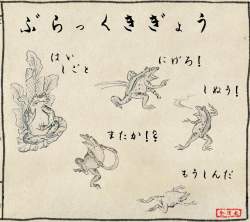 ぶらっくきぎょう
はい
しごと
にげろ！
しぬう！
またか！を
もうしんだ